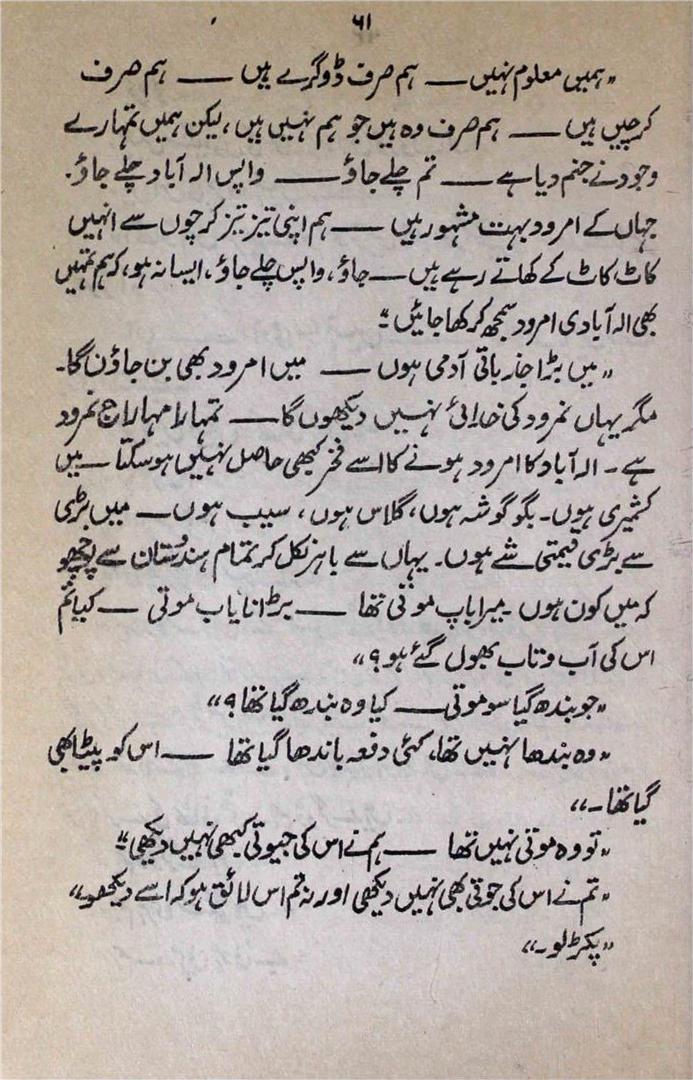 ۶۱
”ہمیں معلوم نہیں ــــ ہم صرف ڈوگرے ہیں ــــ ہم صرف
کرچیں ہیں ــــ ہم صرف وہ ہیں جو ہم نہیں ہیں، لیکن ہمیں تمہارے
وجود نے جنم دیا ہے ــــ تم چلے جاؤ ــــ واپس الہ آباد چلے جاؤ۔
جہاں کے امرود بہت مشہور ہیں ــــ ہم اپنی تیز تیز کرچوں سے انہیں
کاٹ کاٹ کے کھاتے رہے ہیں ــــ جاؤ، واپس چلے جاؤ، ایسا نہ ہو، کہ ہم تمہیں
بھی الہ آبادی امرود سمجھ کر کھا جائیں“
”میں بڑا جذباتی آدمی ہوں ــــ میں امرود بھی بن جاؤں گا۔
مگر یہاں نمرود کی خدائی نہیں دیکھوں گا ــــ تمہارا مہاراج نمرود
ہے۔ الہ آباد کا امرود ہونے کا اسے فخر کبھی حاصل نہیں ہو سکتا ــــ میں
کشمیری ہوں۔ بگو گوشہ ہوں، گلاس ہوں، سیب ہوں ــــ میں بڑی
سے بڑی قیمتی شے ہوں۔ یہاں سے باہر نکل کر تمام ہندستان سے پوچھو
کہ میں کون ہوں۔ میرا باپ موتی تھا ــــ بڑا نایاب موتی ــــ کیا تم
اس کی آب و تاب بھول گئے ہو؟“
”جو بندھ گیا سو موتی ــــ کیا وہ بندھ گیا تھا؟“
”وہ بندھا نہیں تھا، کئی دفعہ باندھا گیا تھا ــــ اس کو پیٹا بھی
گیا تھا۔“
”تو وہ موتی نہیں تھا ــــ ہم نے اس کی جیوتی کبھی نہیں دیکھی“
”تم نے اس کی جوتی بھی نہیں دیکھی اور نہ تم اس لائق ہو کہ اسے دیکھو۔“
”پکڑ لو۔“